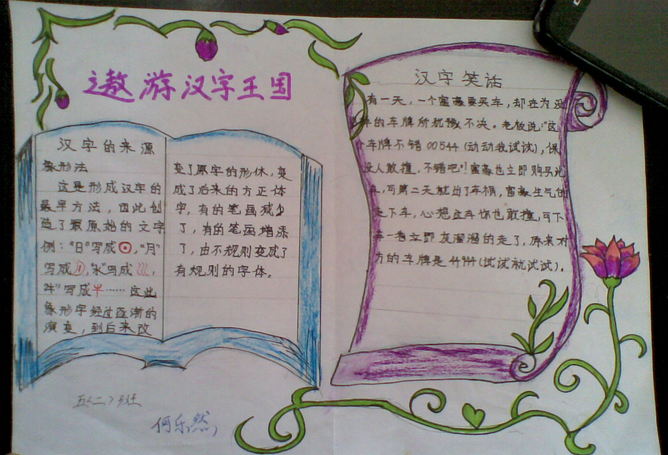 遨游汉字王国
汉字的来源
象形法
这是形成汉字的
最早方法，因此创
造了最原始的文字
例："日"写成，"月"
写成，"水"写成，
"牛"写成……这些
象形字经过逐渐的
演变，到后来改
变了原字的形体，变
成了后来的方正体
字，有的笔画减少
了，有的笔画增添
了，由不规则变成了
有规则的字体。
汉字笑话
有一天，一个富豪要买车，却在为选
车的车牌所犹豫不决。老板说："这
个车牌不错00544（动动我试试），保
没人敢撞，不错吧！"富豪也立即购买此
车，可第二天就出了车祸，富豪生气的
走下车，心想这车你也敢撞，可下
车一看立即灰溜溜的走了，原来对
方的车牌是44944（试试就试试）。
五（二）班
何乐然